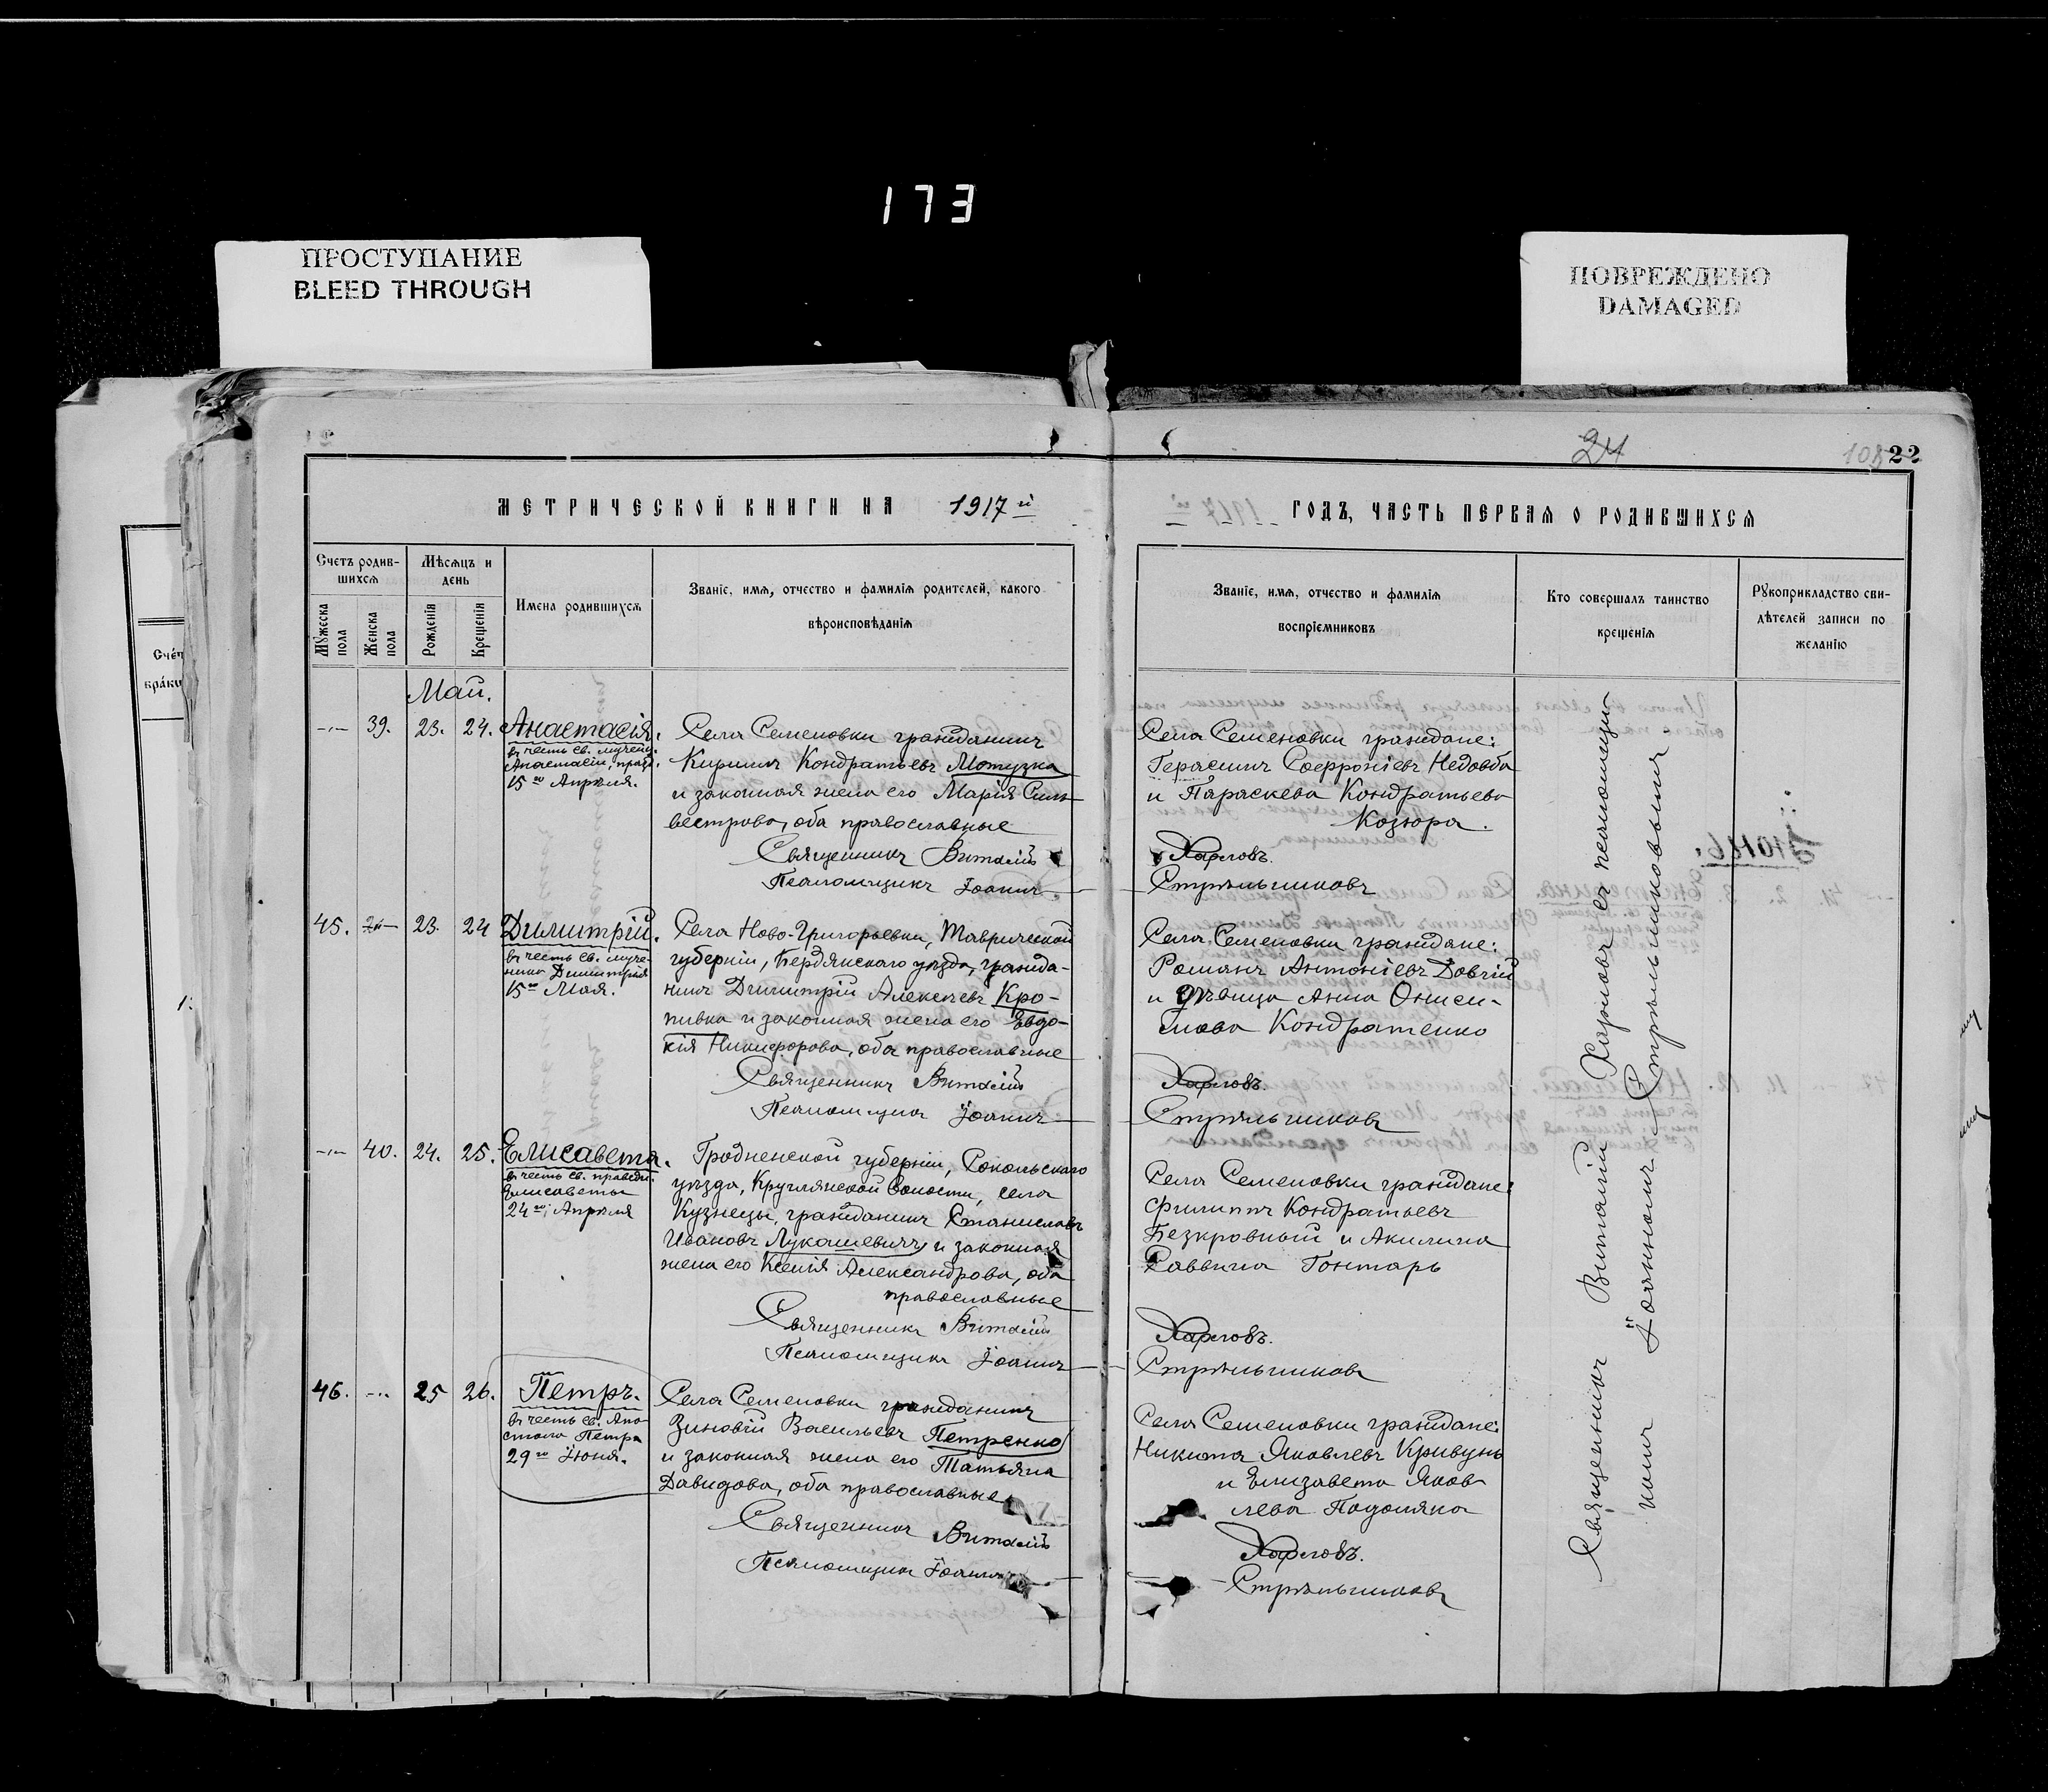 173
ПРОСТУПАНИЕ
BLEED THROUGH
ПОВРЕЖДЕНО
DAMAGED
24
22
МЕТРИЧЕСКОЙ КНИГИ НА 1917 й
ГОДЪ, ЧАСТЬ ПЕРВАЯ О РОДИВШИХСЯ
Счетъ родив-
шихся
Мѣсяцъ и
день
Мужеска
пола
Женска
пола
Рожденія
Крещенія
Имена родившихся
Званіе, имя, отчество и фамилія родителей, какого
вѣроисповѣданія
Званіе, имя, отчество и фамилія
воспріемниковъ
Кто совершалъ таинство
крещенія
Рукоприкладство сви-
дѣтелей записи по
желанію
Май.
39. 23. 24. Анастасія.
въ честь св. мучен.
Анастасіи, празд.
15го Апрѣля.
Села Семеновки гражданинъ
Кириллъ Кондратьевъ Мотузка
и законная жена его Марія Силь-
вестрова, оба православные
Священникъ Виталій
Псаломщикъ Іоаннъ
Села Семеновки граждане:
Герасимъ Софроніевъ Недовба
и Параскева Кондратьева
Козюра.
Харловъ.
Стрѣльниковъ
45. 23. 24 Димитрій.
въ честь св. муче-
ника Димитрія
15го Мая.
Села Ново-Григорьевки, Таврической
губерніи, Бердянскаго уѣзда, гражда-
нинъ Димитрій Алексѣевъ Кро-
пивка и законная жена его Евдо-
кія Никифорова, оба православные
Священникъ Виталій
Псаломщикъ Іоаннъ
Села Семеновки граждане:
Романъ Антоніевъ Довгій
и дѣвица АннаОниси-
мова Кондратенко
Харловъ.
Стрѣльниковъ
40. 24. 25. Елисавета.
въ честь св. праведн.
Елисаветы
24го Апрѣля
Гродненской губерніи, Сокольскаго
уѣзда, Круглянской волости, села
Кузнецы, гражданинъ Станиславъ
Ивановъ Лукашевичъ и законная
жена его Ксенія Александрова, оба
православные
Священникъ Виталій
Псаломщикъ Іоаннъ
Села Семеновки граждане:
Филиппъ Кондратьевъ
Безкровный и Акилина
Саввина Гонтарь
Харловъ.
Стрѣльниковъ
46. 25 26. Петръ.
въ честь св. Апо-
стола Петра
29го Іюня.
Села Семеновки гражданинъ
Зиновій Васильевъ Петренко
и законная жена его Татьяна
Давидова, оба православные
Священникъ Виталій
Псаломщикъ Іоаннъ
Села Семеновки граждане:
Никита Яковлевъ Кривунь
и Елизавета Яков-
лева Подоляка
Харловъ.
Стрѣльниковъ
Священникъ Виталій Харловъ съ псаломщи-
комъ Іоанномъ Стрѣльниковымъ
Счет
браки
1: